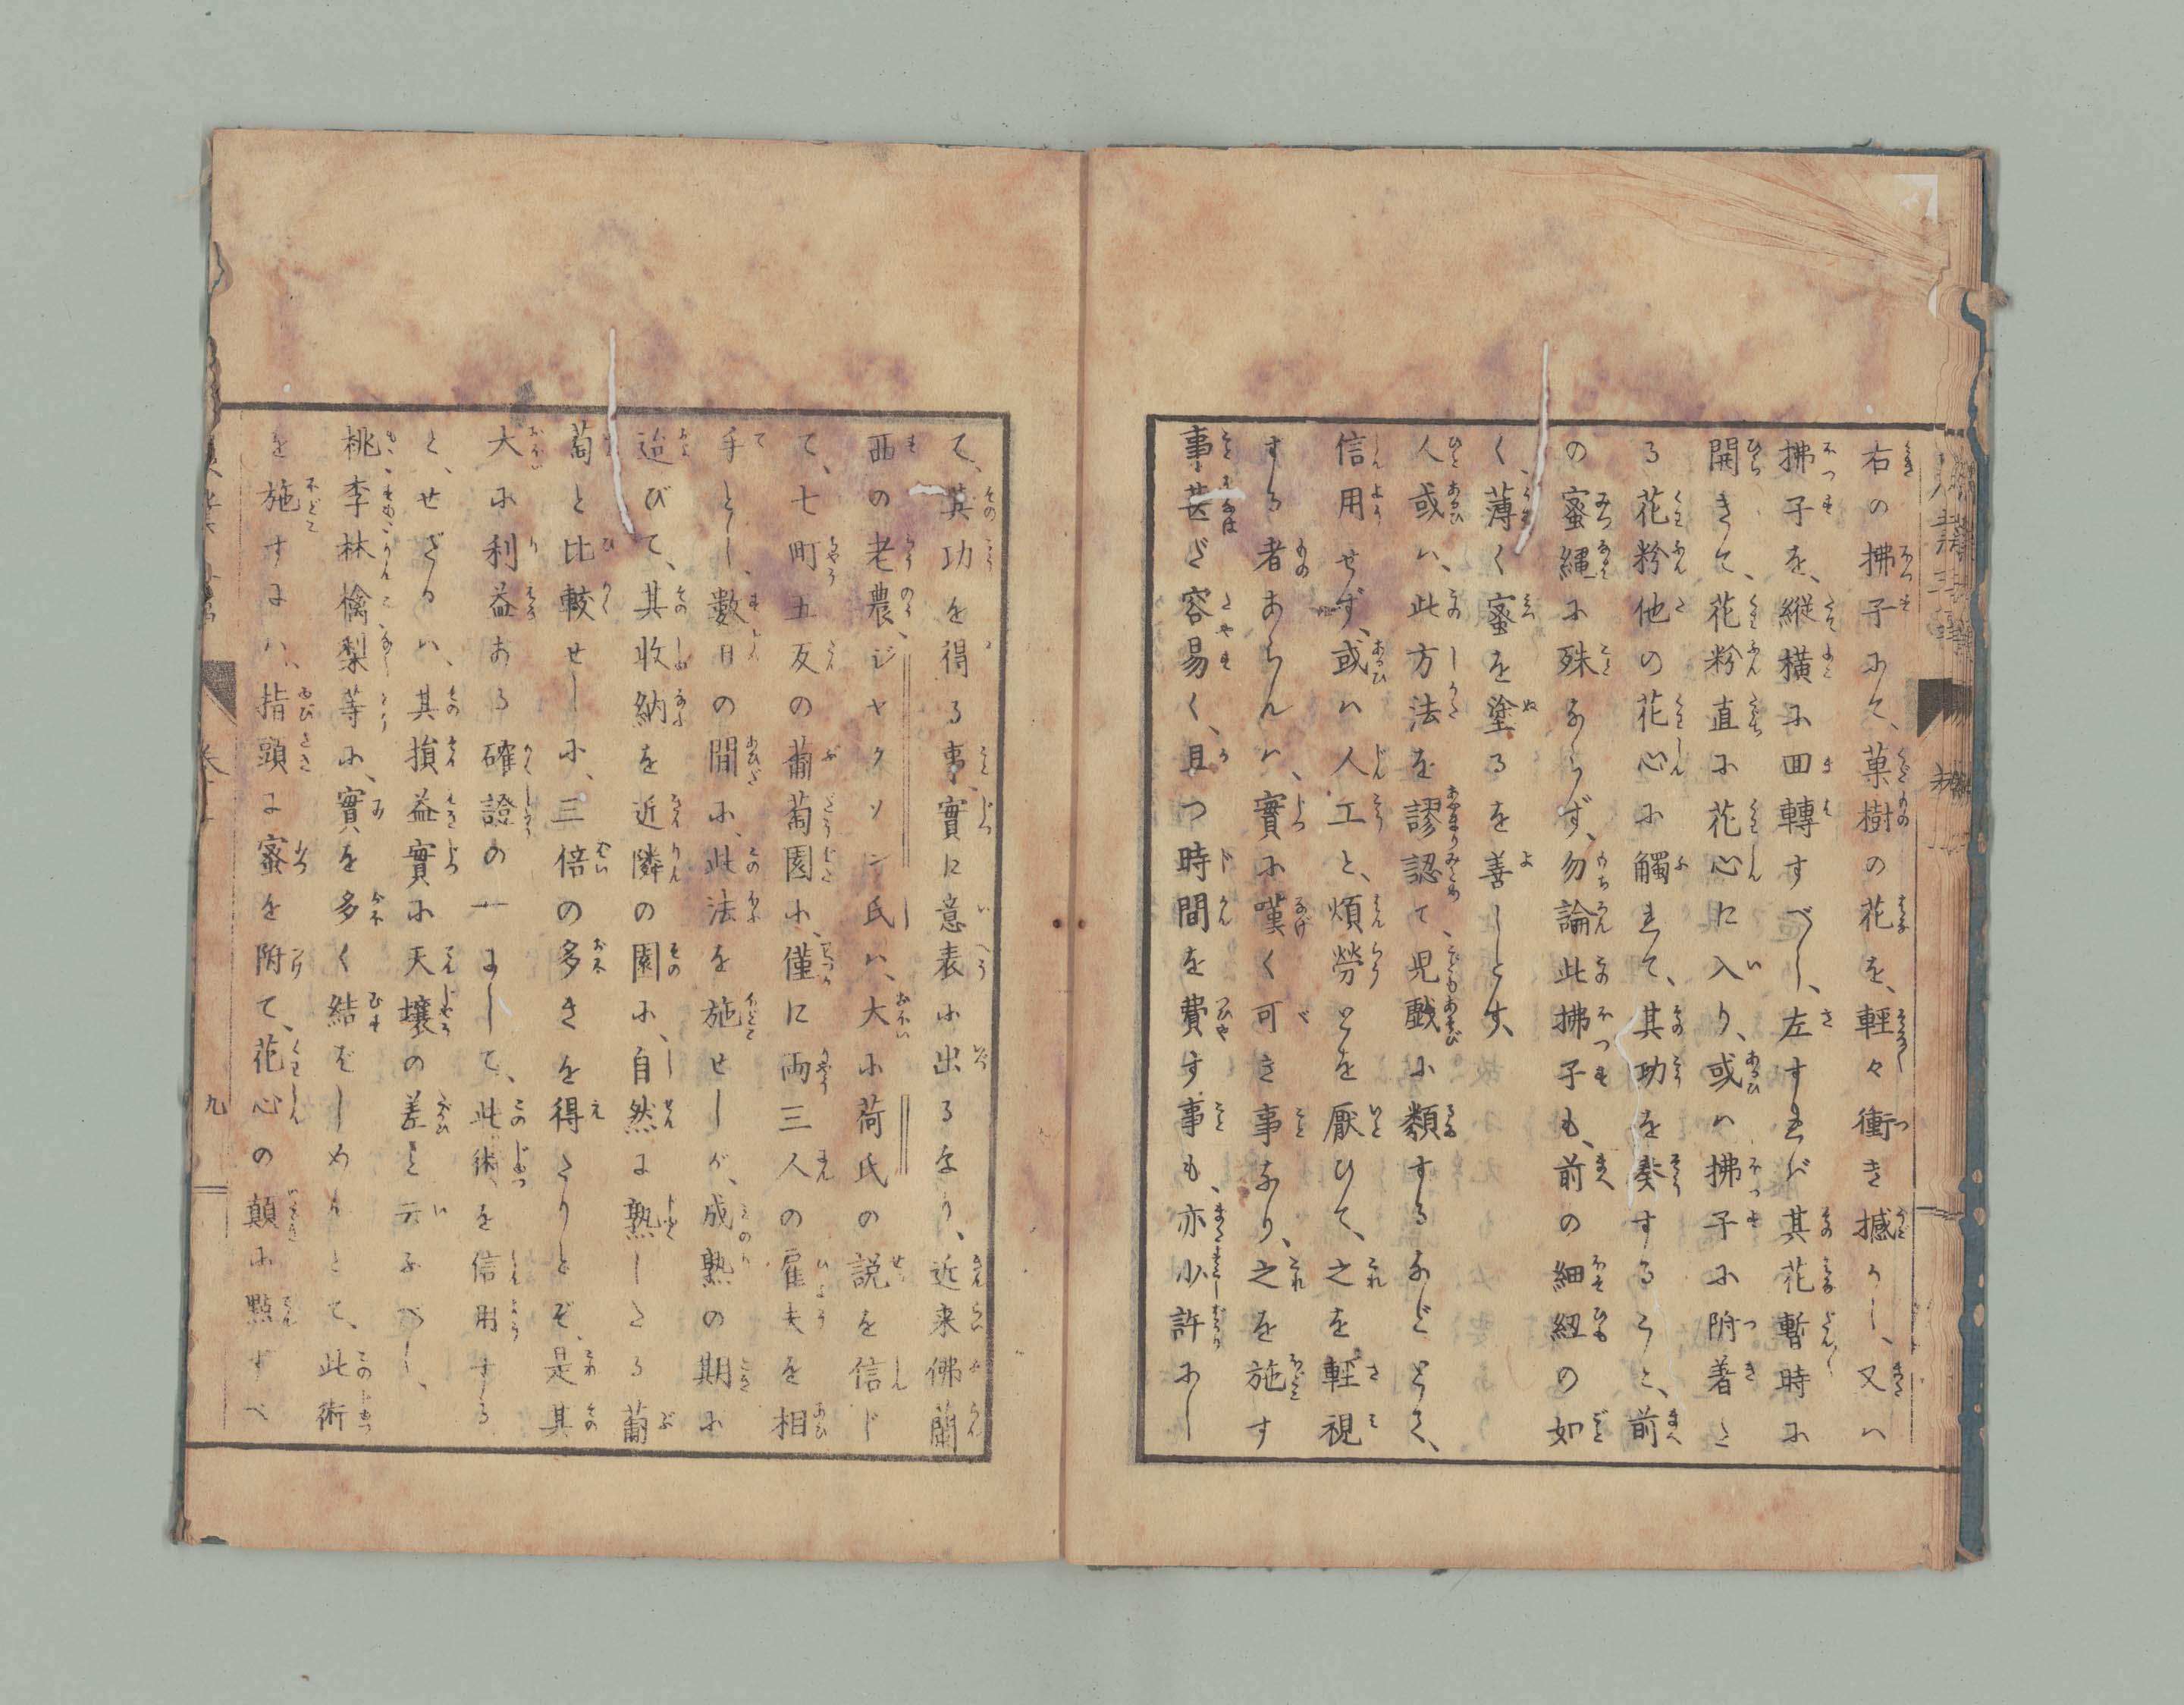 右の拂子にて、菓樹の花を、輕々衝き撼かし、又ハ
拂子を、縦横に回轉すべし、左すれバ其花暫時に
開きて、花粉直に花心に入り、或ハ拂子に附着た
る花粉他の花心に觸れて、其功を奏すること、前
の蜜縄に殊ならず、勿論此拂子も、前の細紐の如
く、薄く蜜を塗るを善しとす、
人或ハ、此方法を謬認て児戯に類するなどとて、
信用せず、或ハ人工と、煩勞とを厭ひて、之を輕視
する者あらんハ、實に嘆く可き事なり、之を施す
事甚だ容易く、且つ時間を費す事も、亦少許にし
て、其功を得る事、實に意表に出るなり、近来佛蘭
西の老農、ジヤクソン氏ハ、大に荷氏の説を信じ
て、七町五反の葡萄園に、僅に両三人の雇夫を相
手とし、數日の間に、此法を施せしが、成熟の期に
迨びて、其收納を近隣の園に、自然に熟したる葡
萄と比較せしに、三倍の多きを得たりとぞ、是其
大に利益ある確證の一にして、此術を信用する
と、せざるハ、其損益實に天壌の差と云ふべし、
桃李林檎梨等に、實を多く結ばしめんとて、此術
を施すにハ、指頭に蜜を附て、花心の顛に點ずべ
九